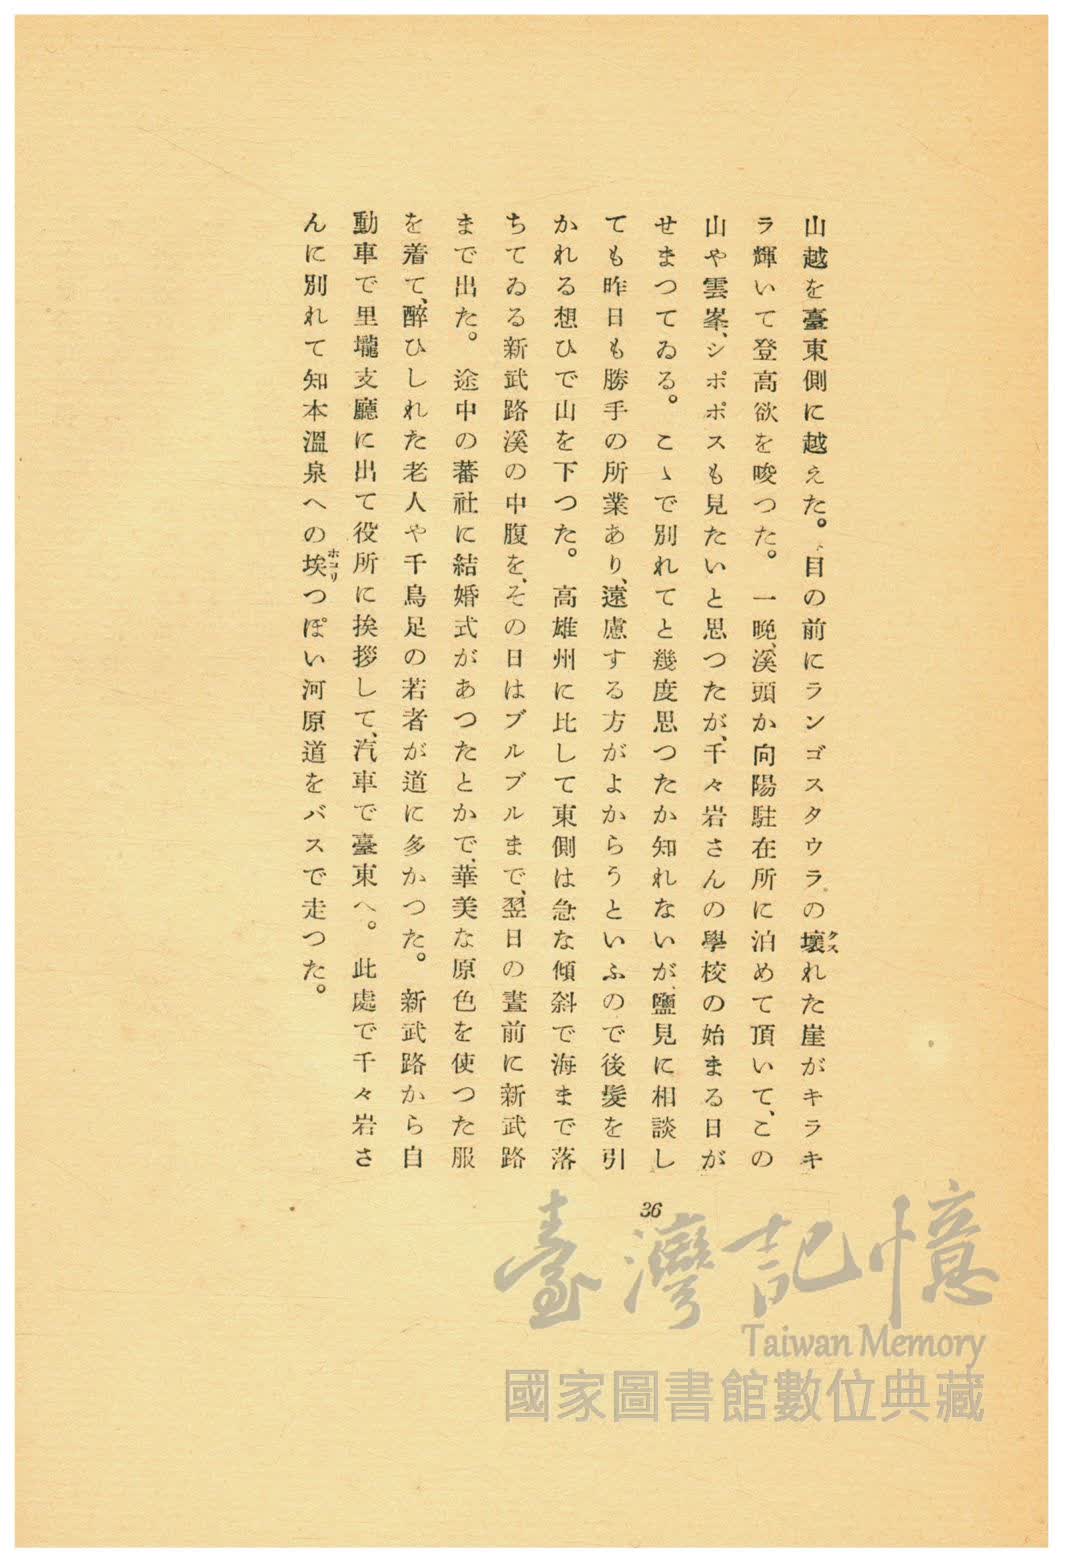 山越を臺東側に越えた。目の前にランゴスタウラの壞れた崖がキラキ
クズ
ラ輝いて登高欲を唆つた。一晩、溪頭か向陽駐在所に泊めて頂いて、この
山や雲峯、シポポスも見たいと思つたが、千々岩さんの學校の始まる日が
せまつてゐる。こゝで別れてと幾度思つたか知れないが、鹽見に相談し
ても昨日も勝手の所業あり、遠慮する方がよからうといふので後髮を引
かれる想ひで山を下つた。高雄州に比して東側は急な傾斜で海まで落
ちてゐる新武路溪の中腹を、その日はブルブルまで、翌日の晝前に新武路
まで出た。途中の蕃社に結婚式があつたとかで、華美な原色を使つた服
を着て、醉ひしれた老人や千鳥足の若者が道に多かつた。新武路から自
動車で里壠支廳に出て役所に挨拶して、汽車で臺東へ。此處で千々岩さ
んに別れて知本溫泉への埃つぽい河原道をバスで走つた。
ホコリ
36
臺灣記憶
Taiwan Memory
國家圖書館數位典藏